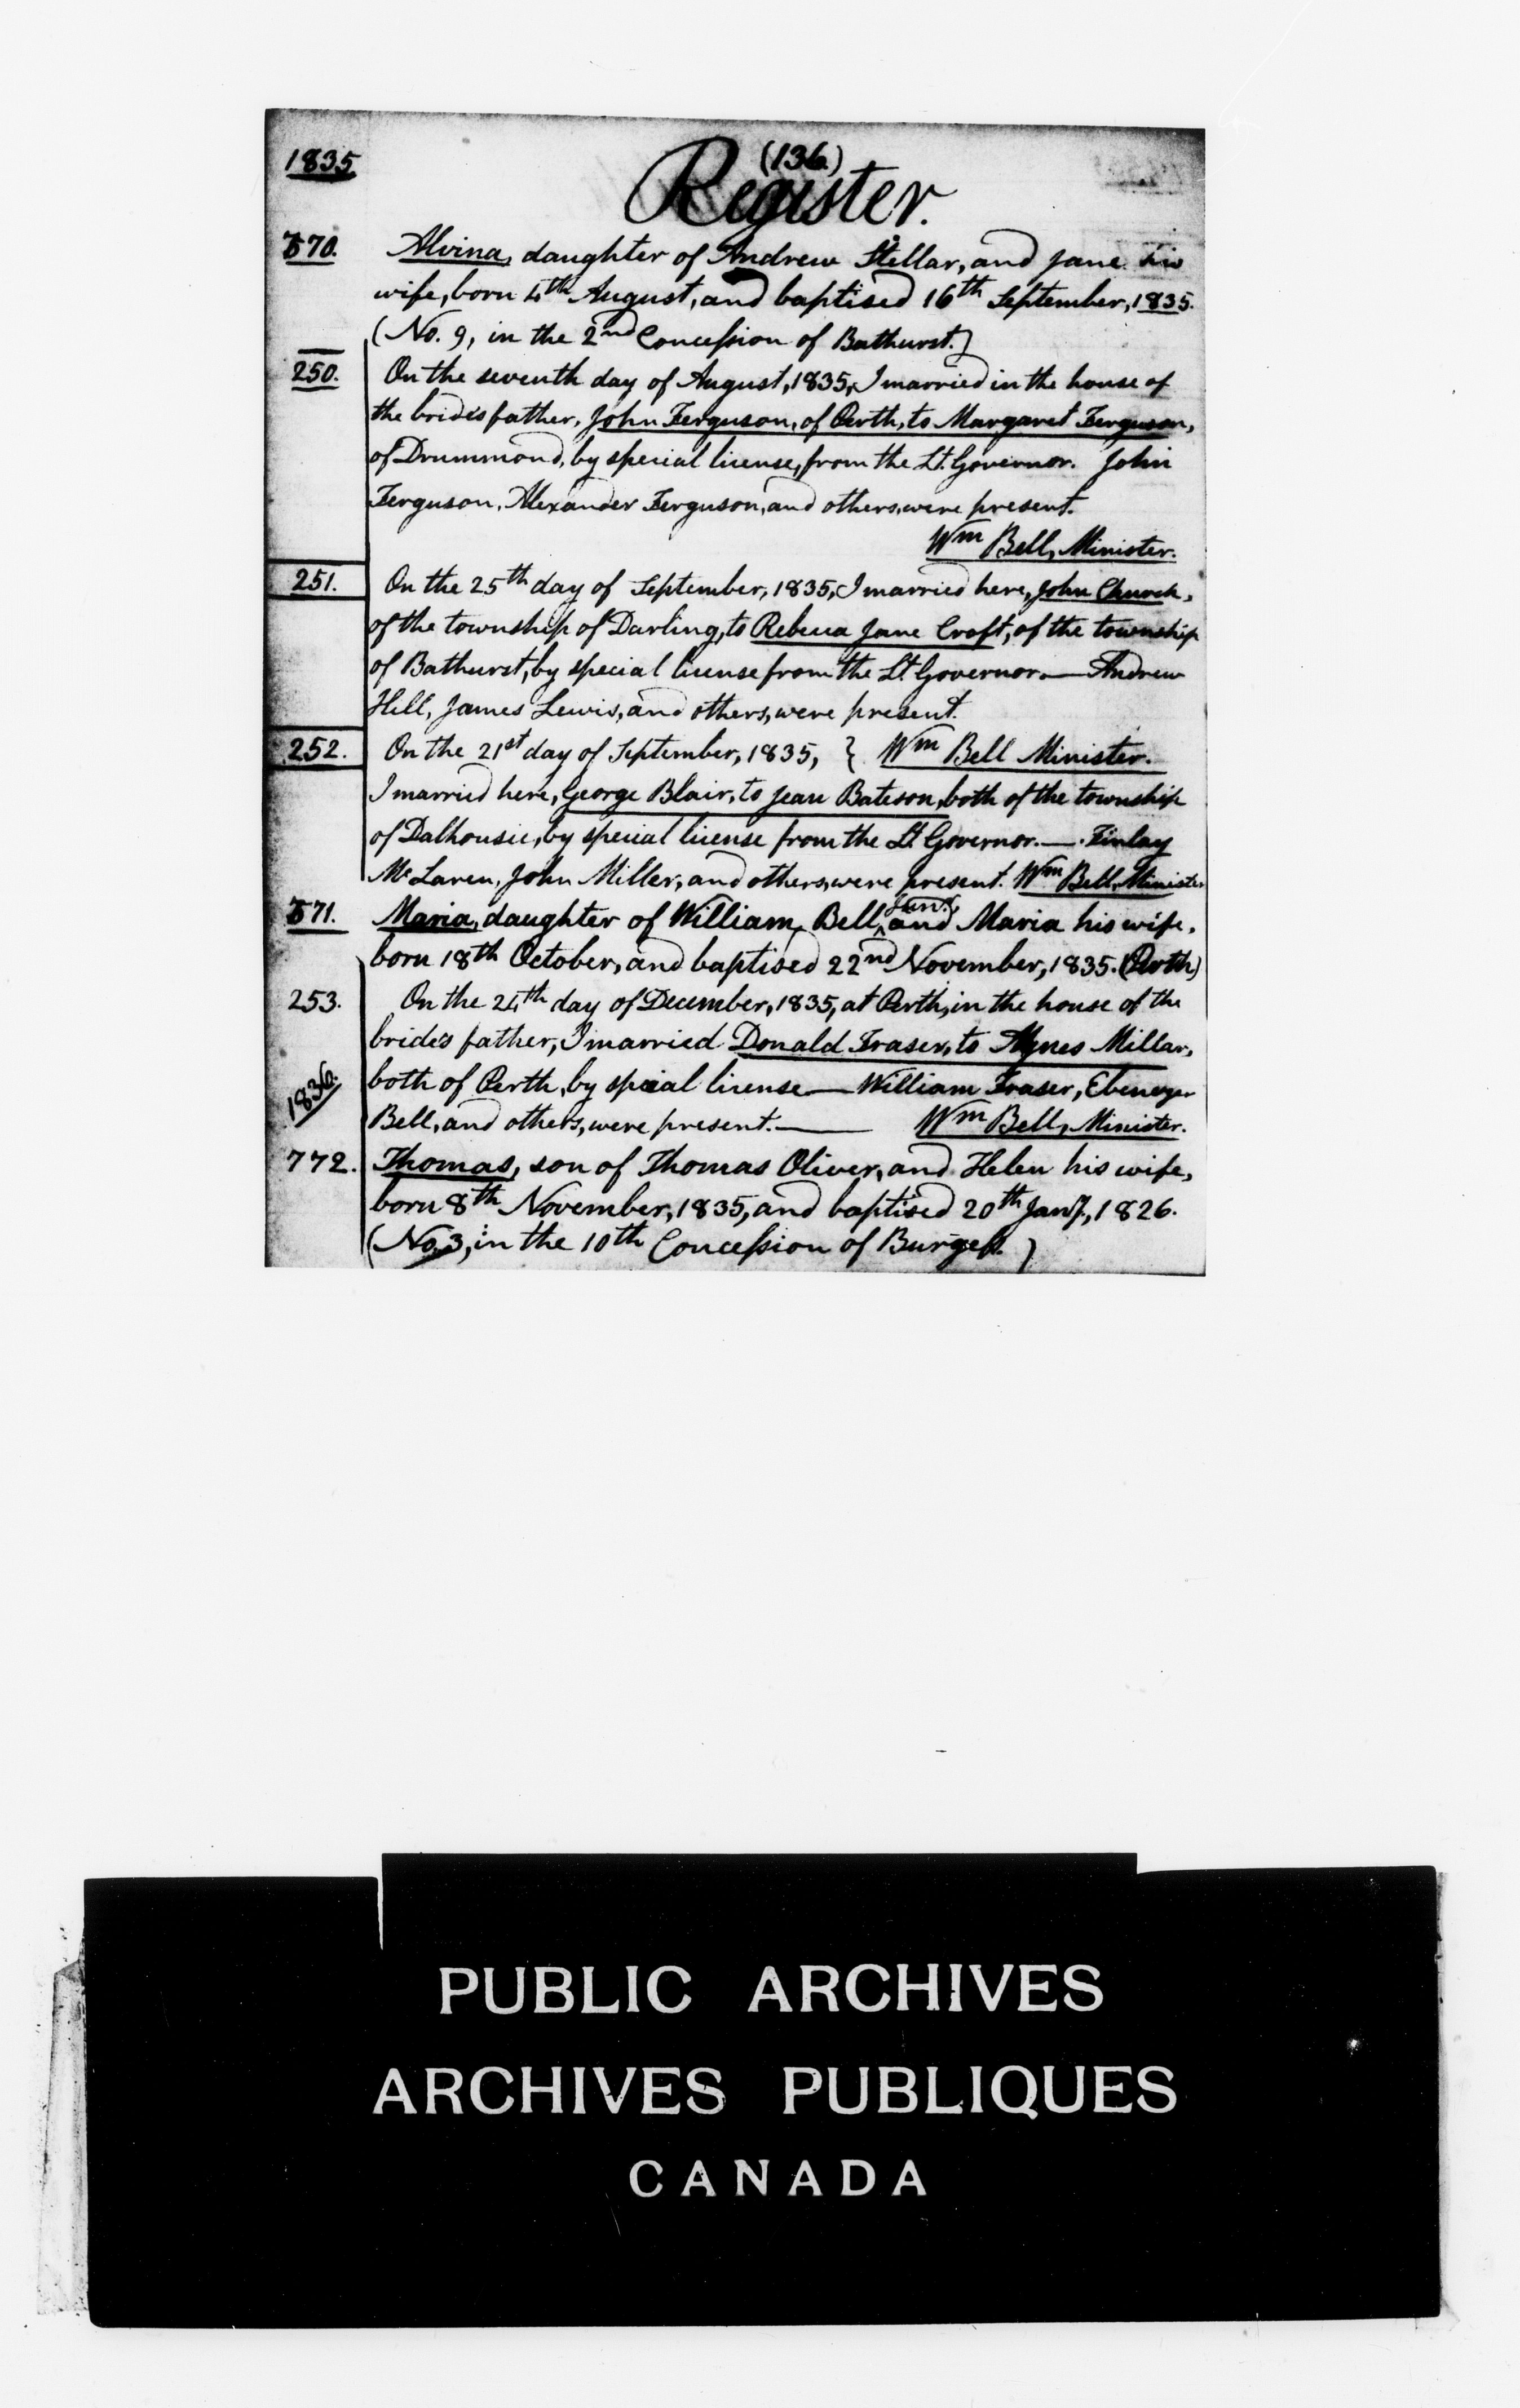 1835
(136)
Register.
770. Alvina, daughter of Andrew Stellar, and Jane his
wife, born 4th August, and baptised 16th September, 1835.
(No. 9, in the 2nd Concession of Bathurst.)
250. On the seventh day of August, 1835, I married in the house of
the bride's father, John Ferguson, of Perth, to Margaret Ferguson,
of Drummond, by special license, from the Lt. Governor. John
Ferguson, Alexander Ferguson, and others, were present.
Wm Bell, Minister.
251. On the 25th day of September, 1835, I married here, John Church,
of the township of Darling, to Rebecca Jane Croft, of the township
of Bathurst, by special license from the Lt. Governor. — Andrew
Hill, James Lewis, and others, were present.
252. On the 21st day of September, 1835, } Wm Bell Minister.
I married here, George Blair, to Jean Bateson, both of the township
of Dalhousie, by special license from the Lt. Governor. — Finlay
Mc Laren, John Miller, and others, were present. Wm Bell, Minister
771. Maria, daughter of William Bell, Junr., and Maria his wife,
born 18th October, and baptised 22nd November, 1835. (Perth)
253. On the 24th day of December, 1835, at Perth, in the house of the
bride's father, I married Donald Fraser, to Agnes Millar,
both of Perth, by special license — William Fraser, Ebenezer
1836.
Bell, and others, were present. — Wm Bell, Minister.
772. Thomas, son of Thomas Oliver, and Helen his wife,
born 8th November, 1835, and baptised 20th Jany., 1826.
(No. 3, in the 10th Concession of Burgess.)
PUBLIC ARCHIVES
ARCHIVES PUBLIQUES
CANADA